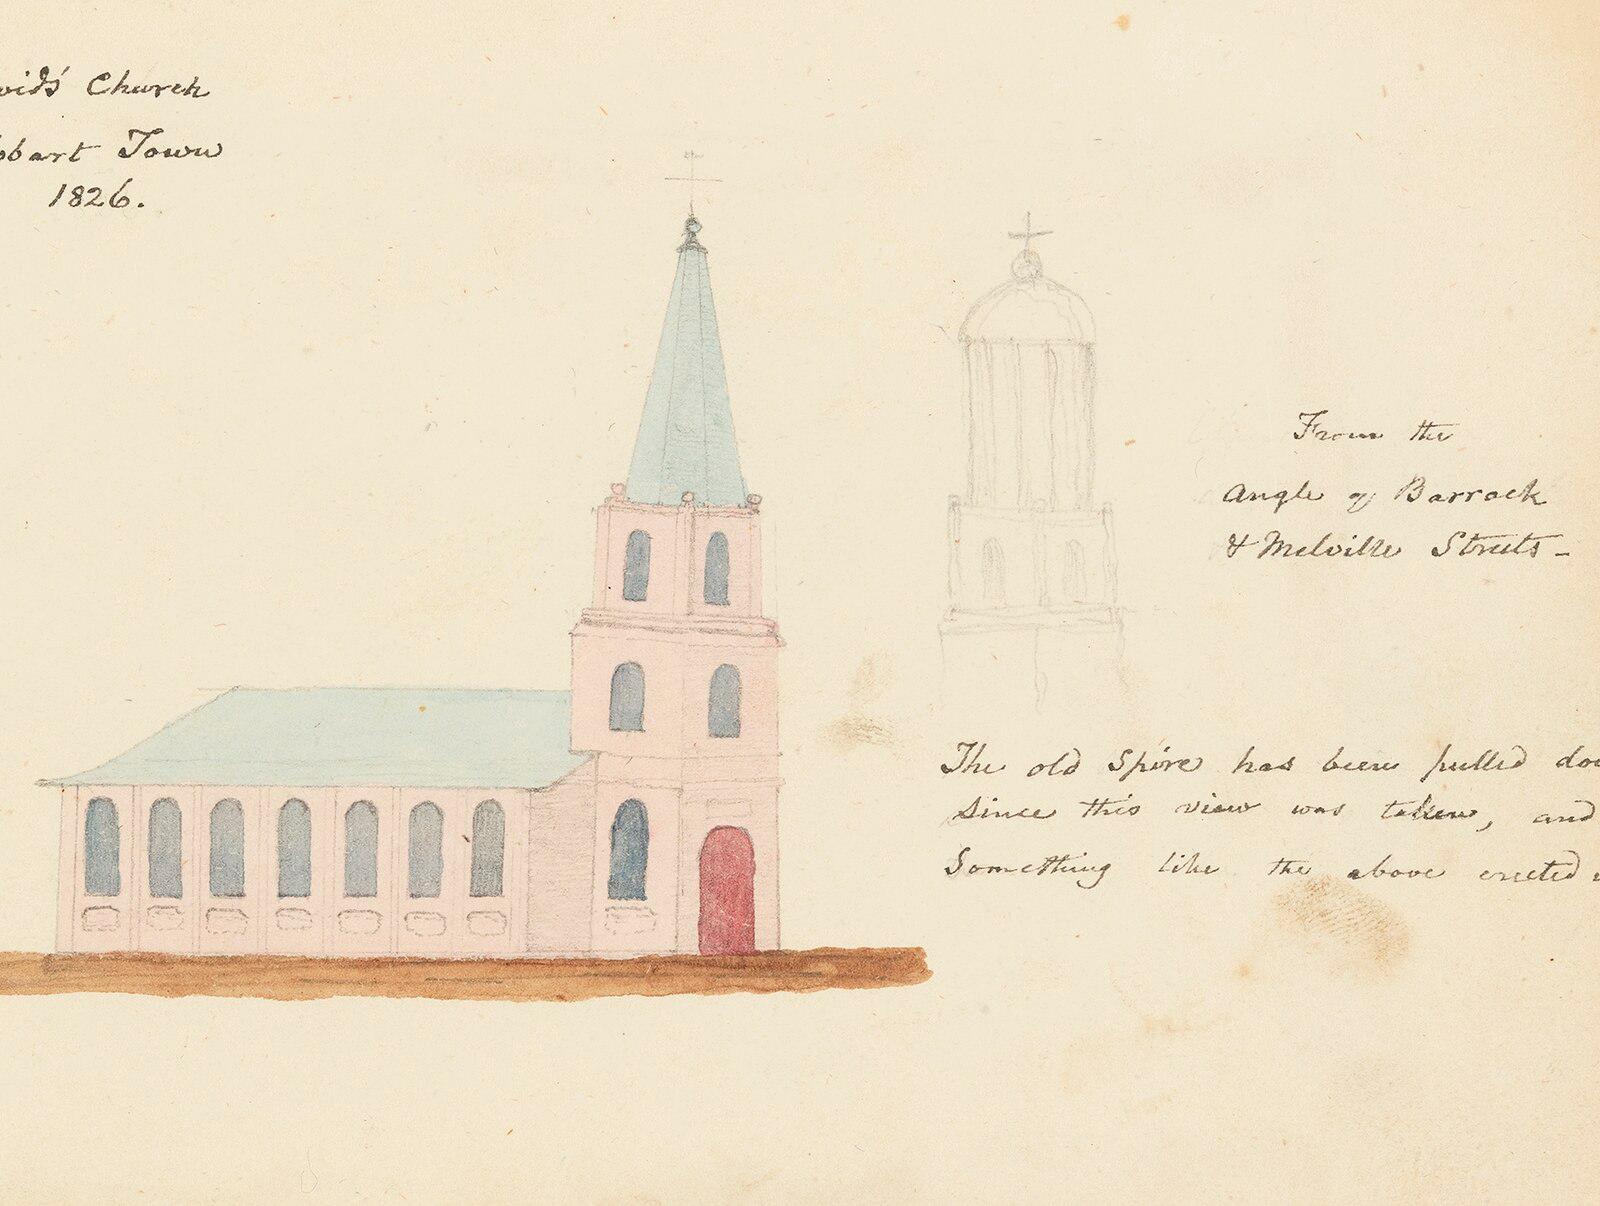 vid's Church
obart Town
1826.
From the
Angle of Barrack
& Melville Streets -
The old Spire has been pulled do
since this view was taken, and
Something like the above erected